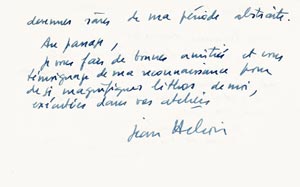 devenues rares de ma période abstraite.
Au passage,
je vous fais de bonnes amitiés et vous
témoignage de ma reconnaissance pour
de si magnifiques lithos de moi,
exécutées dans vos ateliers
Jean Hélion